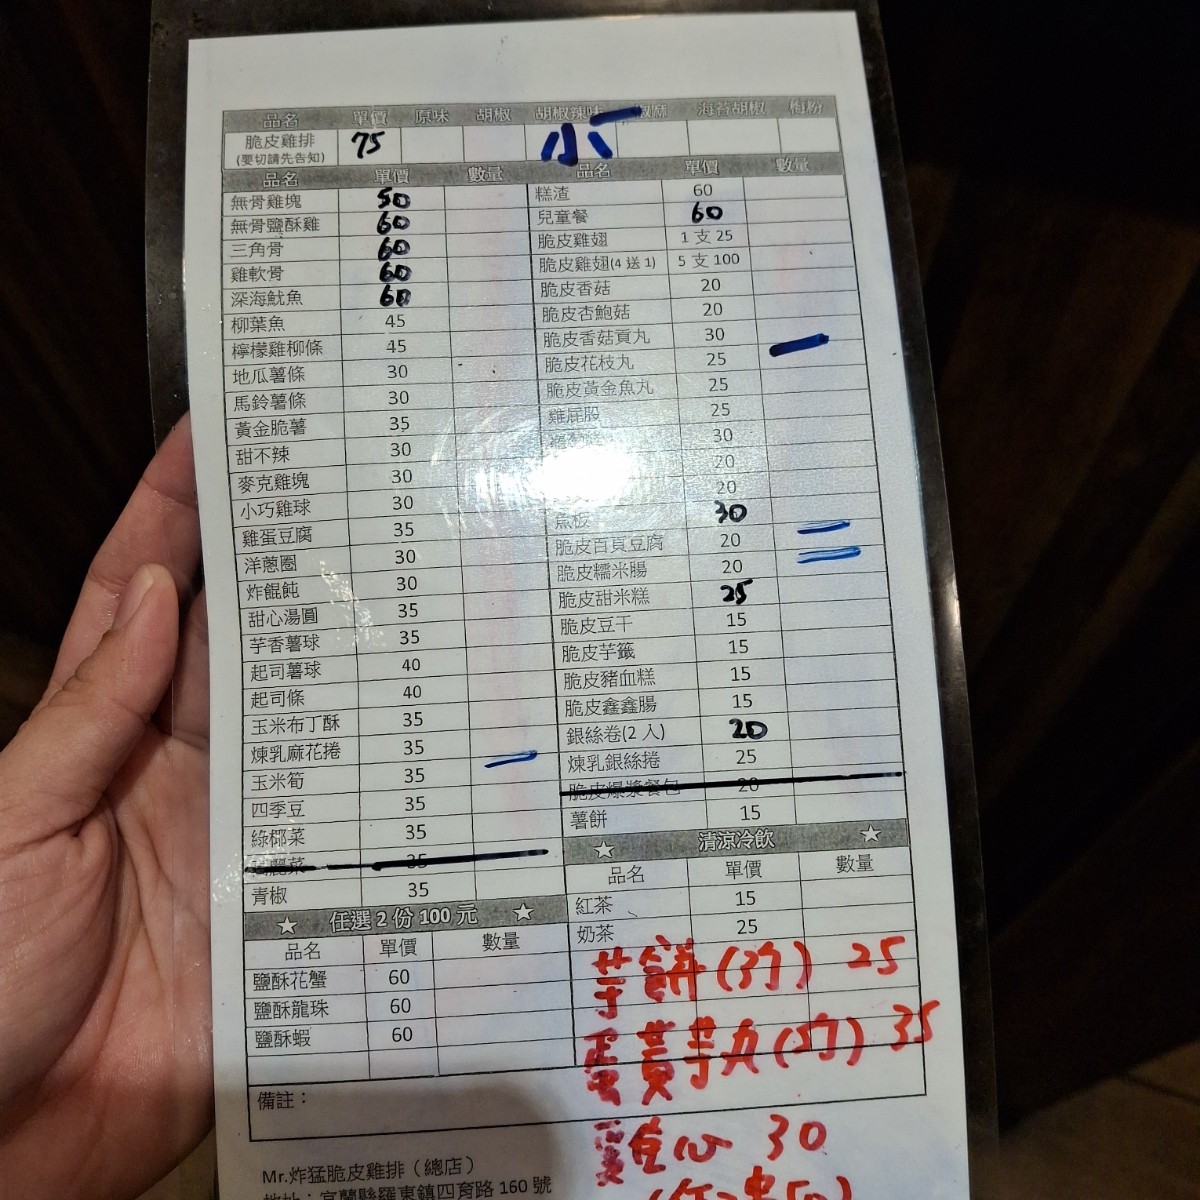 品名 單價 原味 胡椒 胡椒辣味 椒麻 海苔胡椒 梅粉
脆皮雞排 75
(要切請先告知)
小
品名 單價 數量
無骨雞塊 50
無骨鹽酥雞 60
三角骨 60
雞軟骨 60
深海魷魚 60
柳葉魚 45
檸檬雞柳條 45
地瓜薯條 30
馬鈴薯條 30
黃金脆薯 35
甜不辣 30
麥克雞塊 30
小巧雞球 30
雞蛋豆腐 35
洋蔥圈 30
炸餛飩 30
甜心湯圓 35
芋香薯球 35
起司薯球 40
起司條 40
玉米布丁酥 35
煉乳麻花捲 35
玉米筍 35
四季豆 35
綠椰菜 35
麗菜 35
青椒 35
★ 任選 2 份 100 元 ★
品名 單價 數量
鹽酥花蟹 60
鹽酥龍珠 60
鹽酥蝦 60
品名 單價 數量
糕渣 60
兒童餐 60
脆皮雞翅 1 支 25
脆皮雞翅(4 送 1) 5 支 100
脆皮香菇 20
脆皮杏鮑菇 20
脆皮香菇貢丸 30
脆皮花枝丸 25
脆皮黃金魚丸 25
雞屁股 25
30
20
20
魚板 30
脆皮百頁豆腐 20
脆皮糯米腸 20
脆皮甜米糕 25
脆皮豆干 15
脆皮芋籤 15
脆皮豬血糕 15
脆皮鑫鑫腸 15
銀絲卷(2 入) 20
煉乳銀絲捲 25
脆皮爆漿餐包 20
薯餅 15
★ 清涼冷飲 ★
品名 單價 數量
紅茶 15
奶茶 25
芋餅(3个) 25
蛋黃芋丸(5个) 35
雞心 30
備註：
Mr.炸猛脆皮雞排（總店）
地址：宜蘭縣羅東鎮四育路 160 號